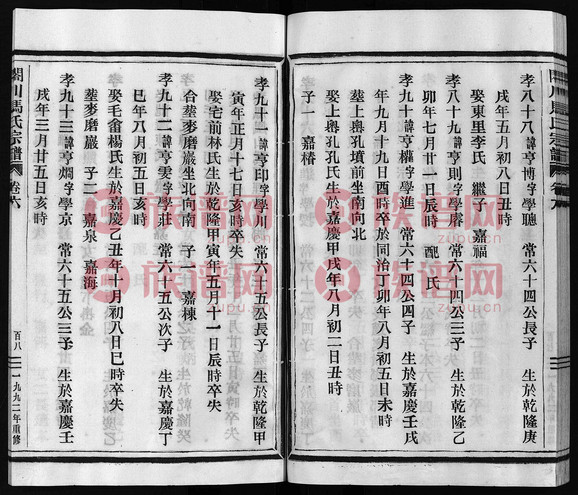 孝八十八諱亨博字聰　常六十四公長子　生於乾隆庚
戌年五月初八日戌時
娶東里李氏　繼子　嘉福
孝八十九諱亨則字睿　常六十四公三子　生於乾隆乙
卯年七月廿一日辰時　配　氏
孝九十諱亨權字學進　常六十四公四子　生於嘉慶壬戌
年九月十九日酉時卒於同治丁卯年八月初五日未時
娶上轝孔氏生於嘉慶甲戌年八月初二日丑時
塟上轝孔墳前坐南向北
子一　嘉椿
孝九十一諱亨印字學川　常六十五公長子　生於乾隆甲
寅年正月十七日亥時卒失
娶宅前林氏生於乾隆甲寅年五月十一日辰時卒失
合塟麥磨巖坐北向南　子一　嘉棟
孝九十二諱亨雲字學莊　常六十五公次子　生於嘉慶丁
巳年八月初五日亥時
娶毛畬楊氏生於嘉慶乙丑年十月初八日巳時卒失
塟麥磨巖　子二　嘉泉　嘉海
孝九十三諱亨爛字學京　常六十五公三子　生於嘉慶壬
戌年三月廿五日亥時
閣川馬氏宗譜　卷六
百八
一九九二年重修
族谱网
zupu.cn
族谱网
zupu.cn
族谱网
zupu.cn
族谱网
zupu.cn